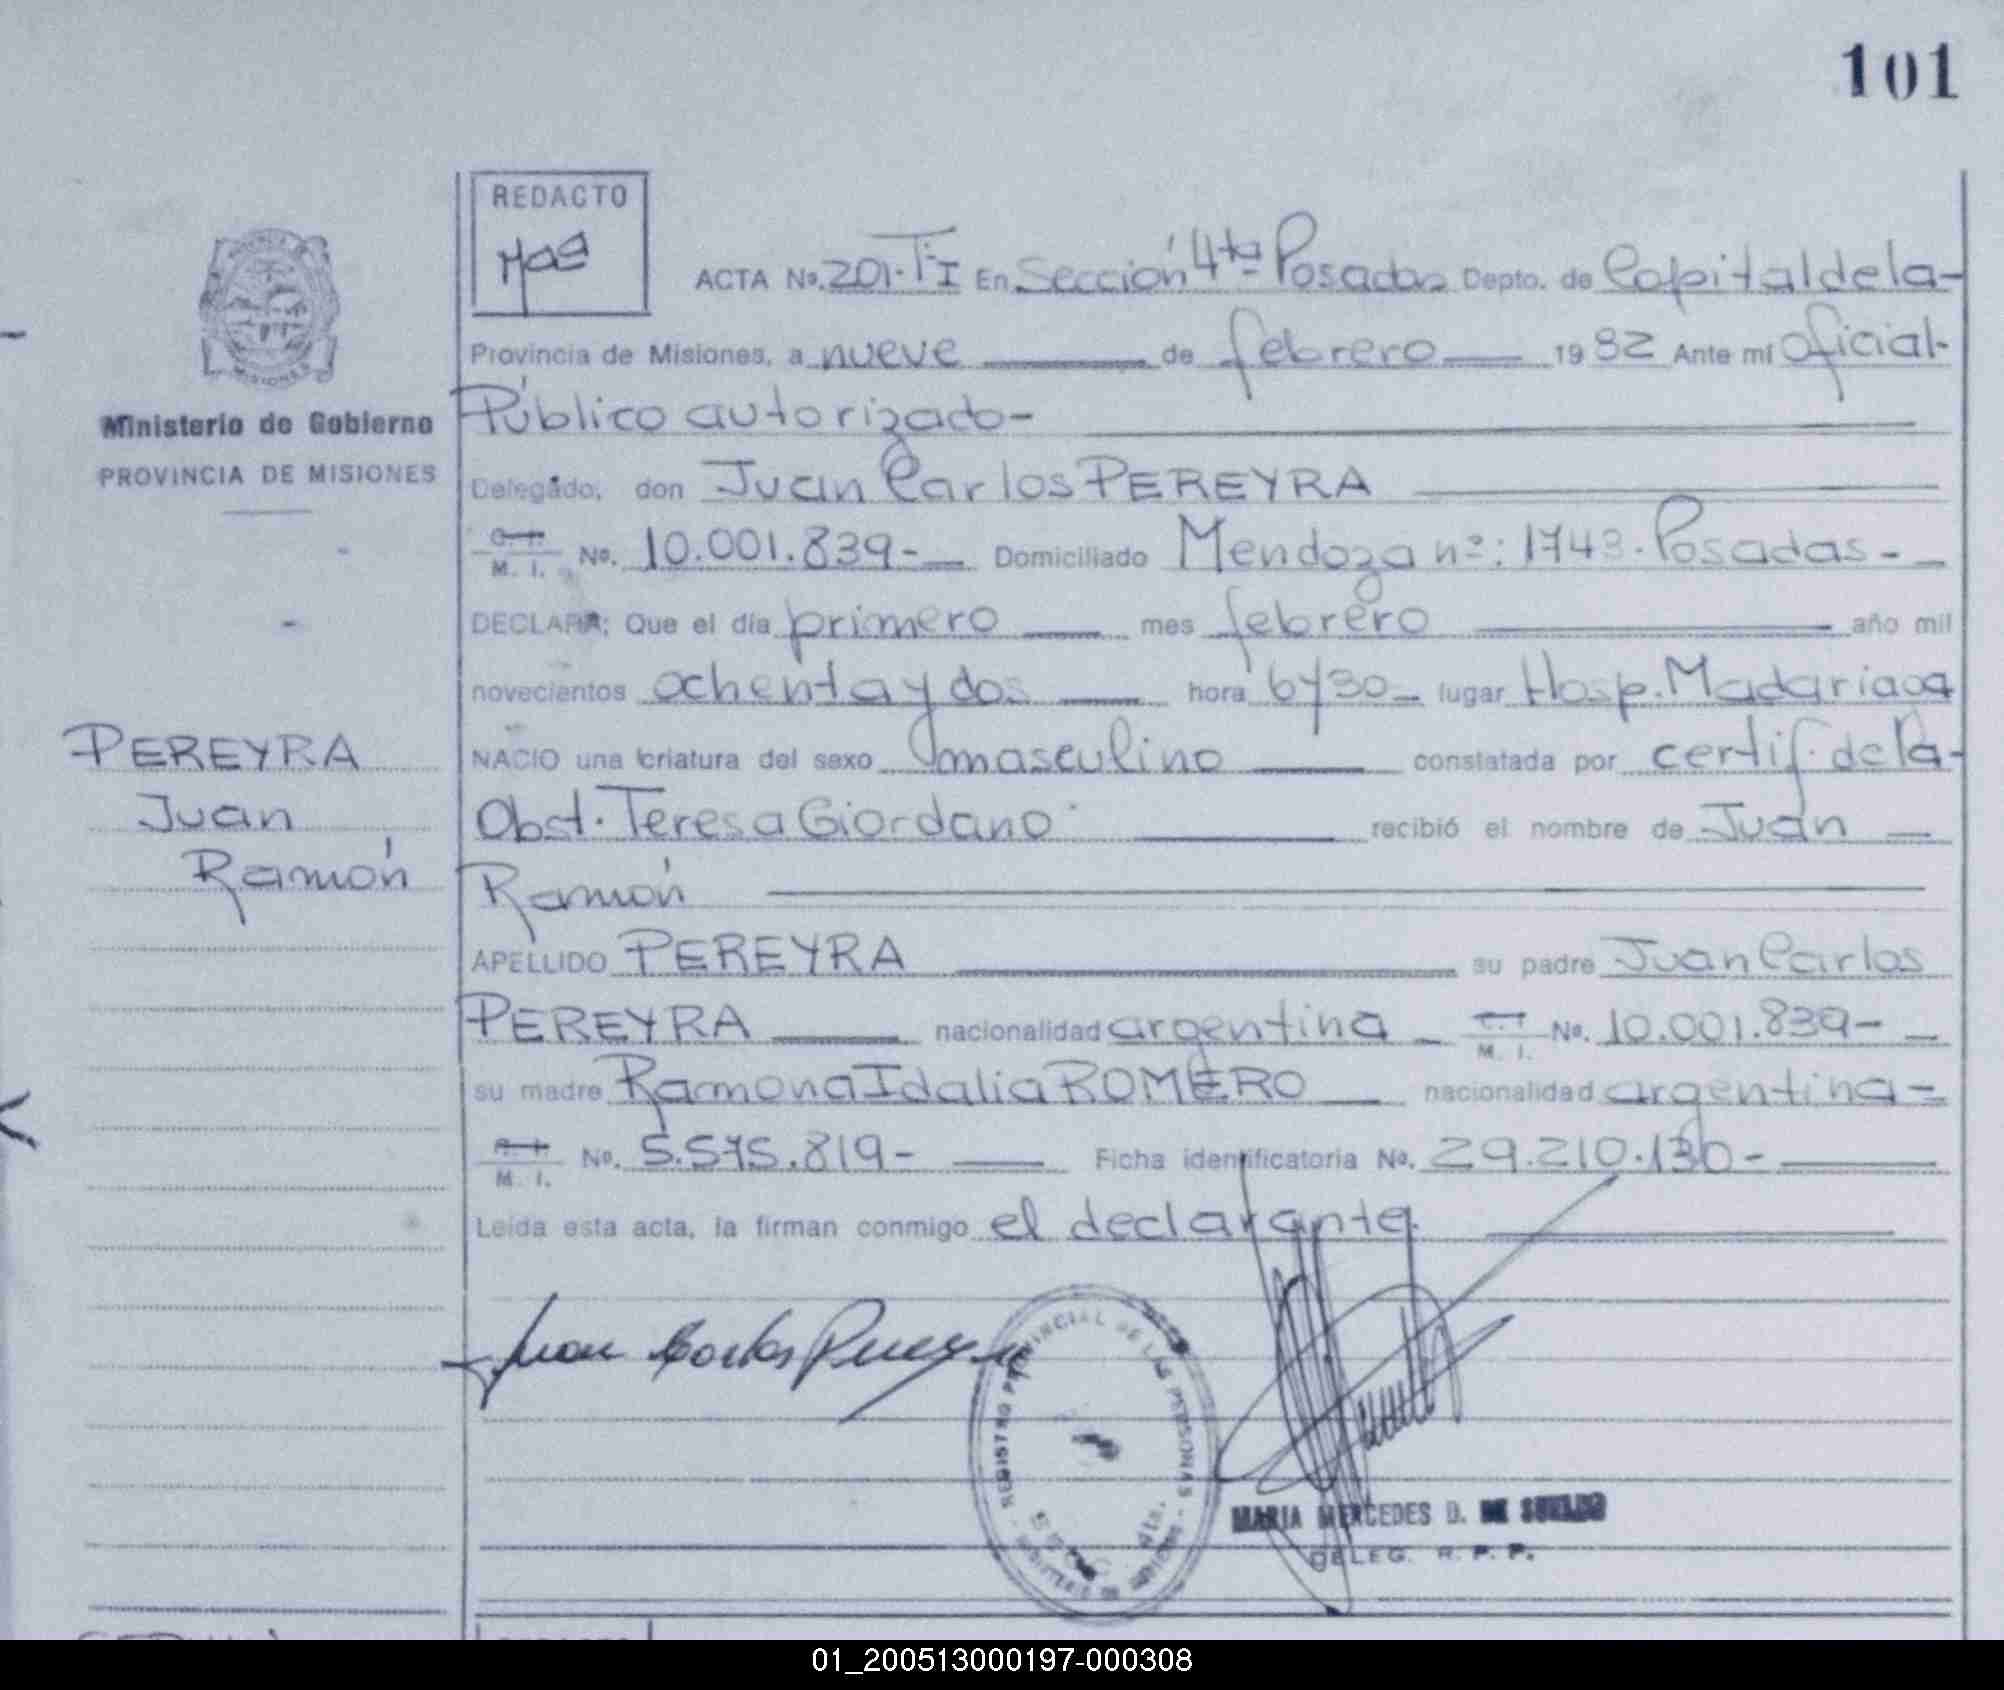 101
REDACTO
ACTA No. 201-T-I En Sección 4ta Posadas Depto. de Capital de la-
Provincia de Misiones, a nueve de febrero 1982 Ante mí oficial-
Ministerio de Gobierno
PROVINCIA DE MISIONES
Público autorizado-
Delegado, don Juan Carlos PEREYRA
C. I. M. I. No. 10.001.839- Domiciliado Mendoza nº: 1743. Posadas-
DECLARA: Que el día primero mes febrero año mil
novecientos ochenta y dos hora 6y30- lugar Hosp. Madariaga
NACIO una criatura del sexo masculino constatada por certif. de la-
Obst. Teresa Giordano recibió el nombre de Juan
Ramón
PEREYRA
Juan
Ramón
APELLIDO PEREYRA su padre Juan Carlos
PEREYRA nacionalidad argentina C. I. M. I. No. 10.001.839-
su madre Ramona Idalia ROMERO nacionalidad argentina-
M. I. No. 5.575.819- Ficha identificatoria No. 29.210.130-
Leída esta acta, la firman conmigo el declarante.
Juan Carlos Pereyra
REGISTRO PROVINCIAL DE LAS PERSONAS
MARIA MERCEDES D. DE
DELEG. R. P. P.
01_200513000197-000308